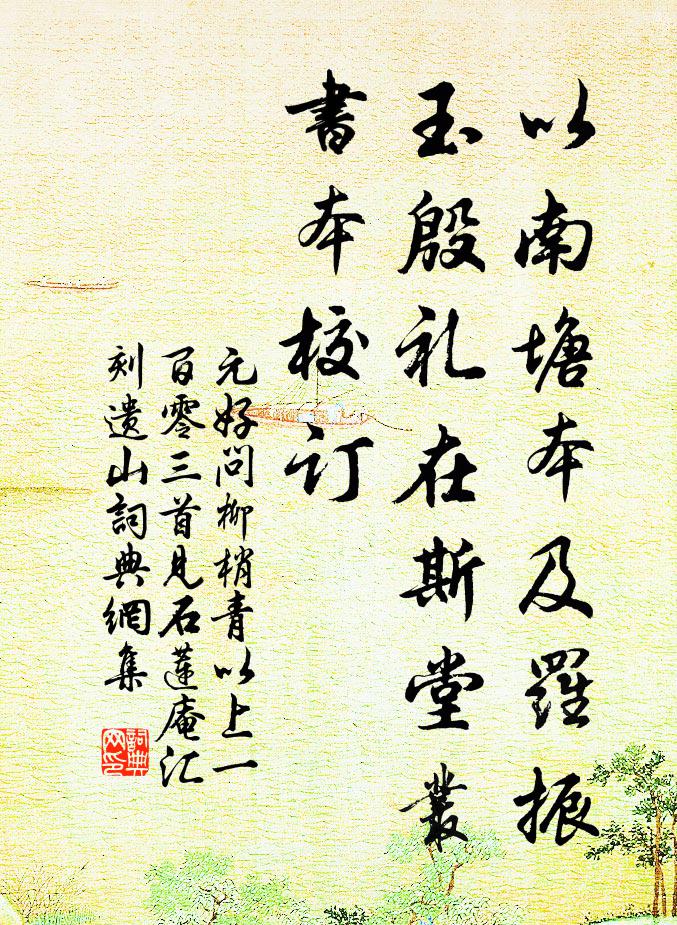 以南塘本及羅振
玉殷礼在斯堂叢
書本校订
元好问柳梢青以上一
百零三首见石莲庵汇
刻遗山詞典網集
詞典
网印